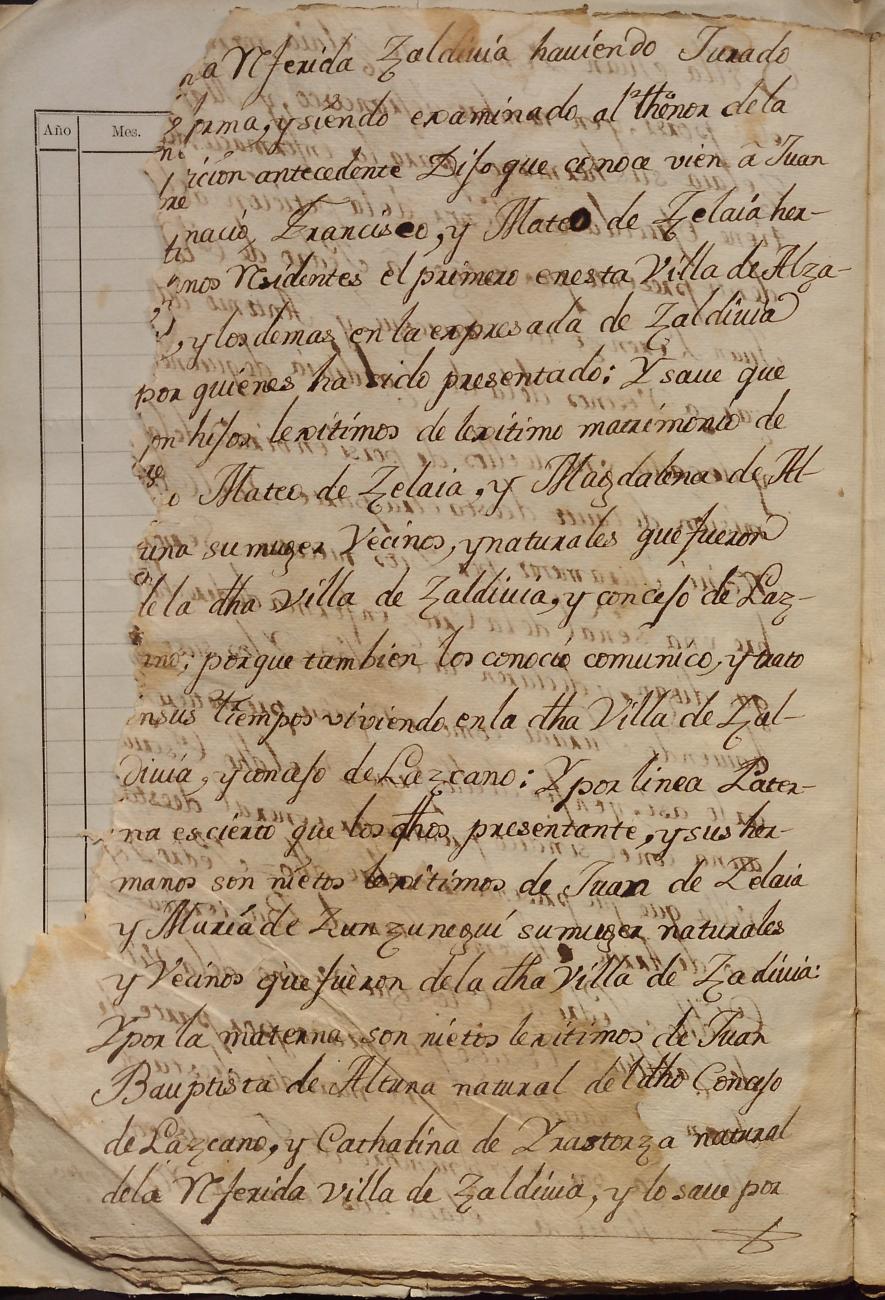 Año Mes.
na Rferida Zaldiuia hauiendo Jurado
forma, y siendo examinado al thenor de la
ticion antecedente Dijo que conoce vien à Juan
nacio, Francisco, y Mateo de Zelaia her-
nos Rsidentes el primero en esta Villa de Alza-
, y los demas en la expresada de Zaldiuia
por quiénes ha sido presentado: Y saue que
on hijos lexitimos de lexitimo matrimonio de
o Mateo de Zelaia, y Magdalena de Al-
una su muger Vecinos, y naturales que fueron
de la dha Villa de Zaldiuia, y concejo de Laz-
ano; porque tambien los conoció comunico, y trato
en sus tiempos viviendo en la dha Villa de Zal-
diuia, y concejo de Lazcano: Y por linea Pater-
na es cierto que los dhos presentante, y sus her-
manos son nietos lexitimos de Juan de Zelaia
y Maria de Zunzunegui su muger naturales
y Vecinos que fueron de la dha Villa de Zadiuia:
Y por la materna son nietos lexitimos de Juan
Bauptista de Altuna natural del dho Concejo
de Lazcano, y Cathalina de Yrastorza natural
de la Rferida villa de Zaldiuia, y lo saue por